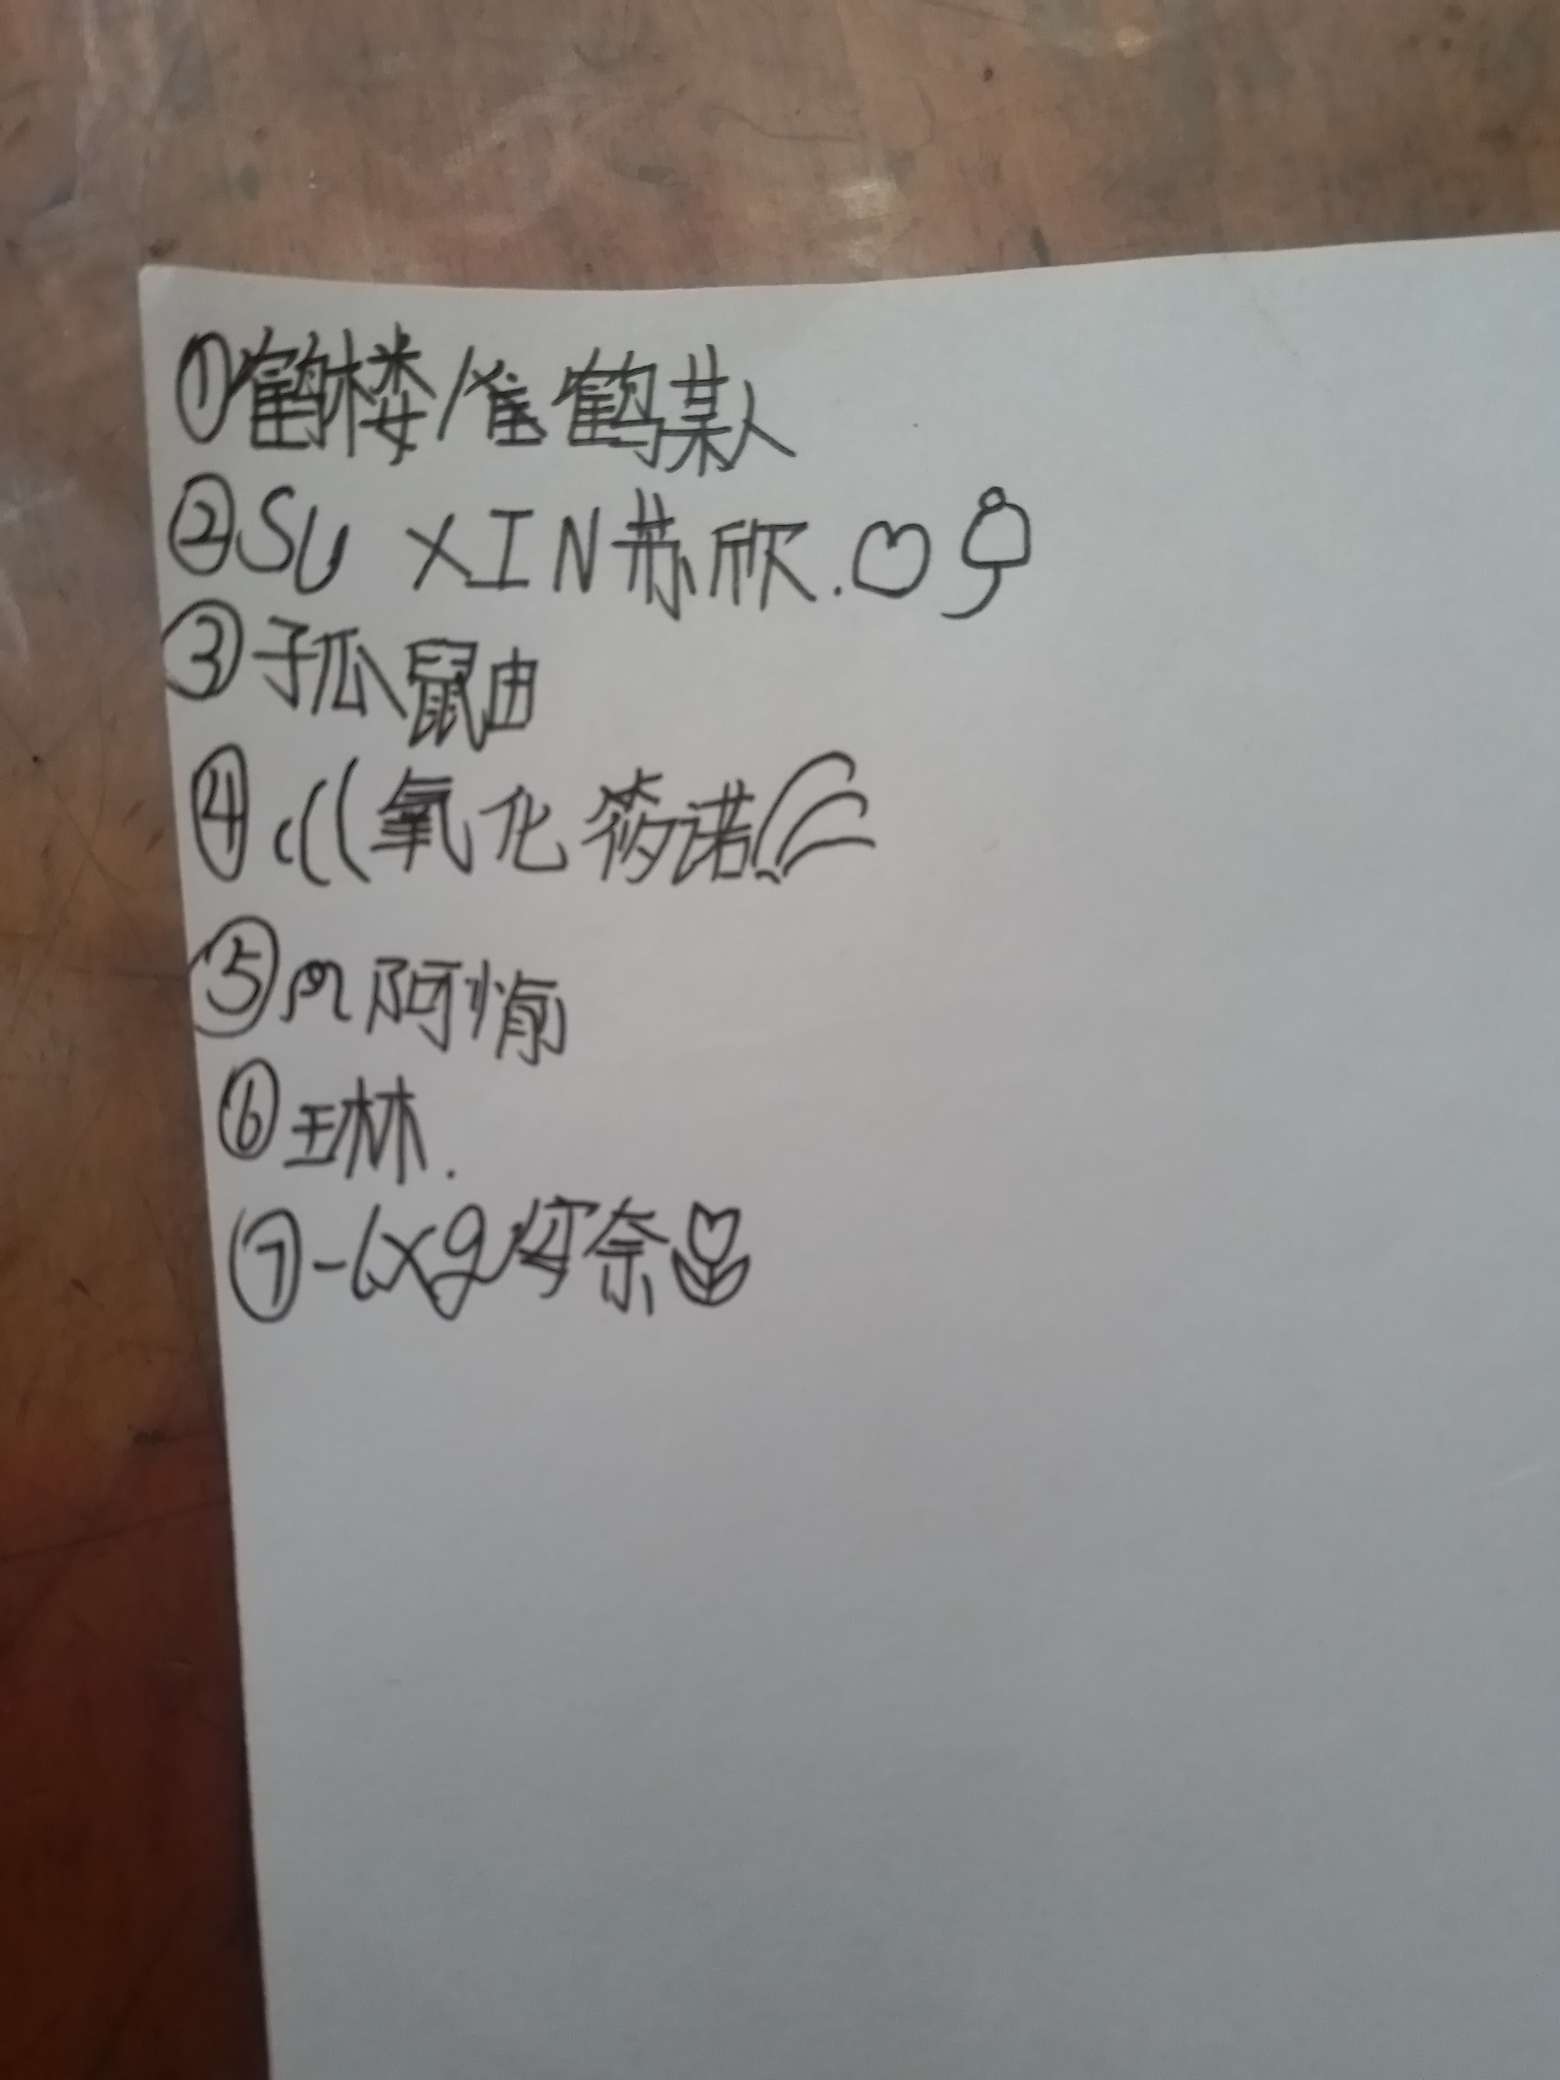 ①鹤楼/崔鹤某人
②SU XIN苏欣.
③子瓜鼠由
④氧化筱诺
⑤阿愉
⑥王林.
⑦-lxg 奈